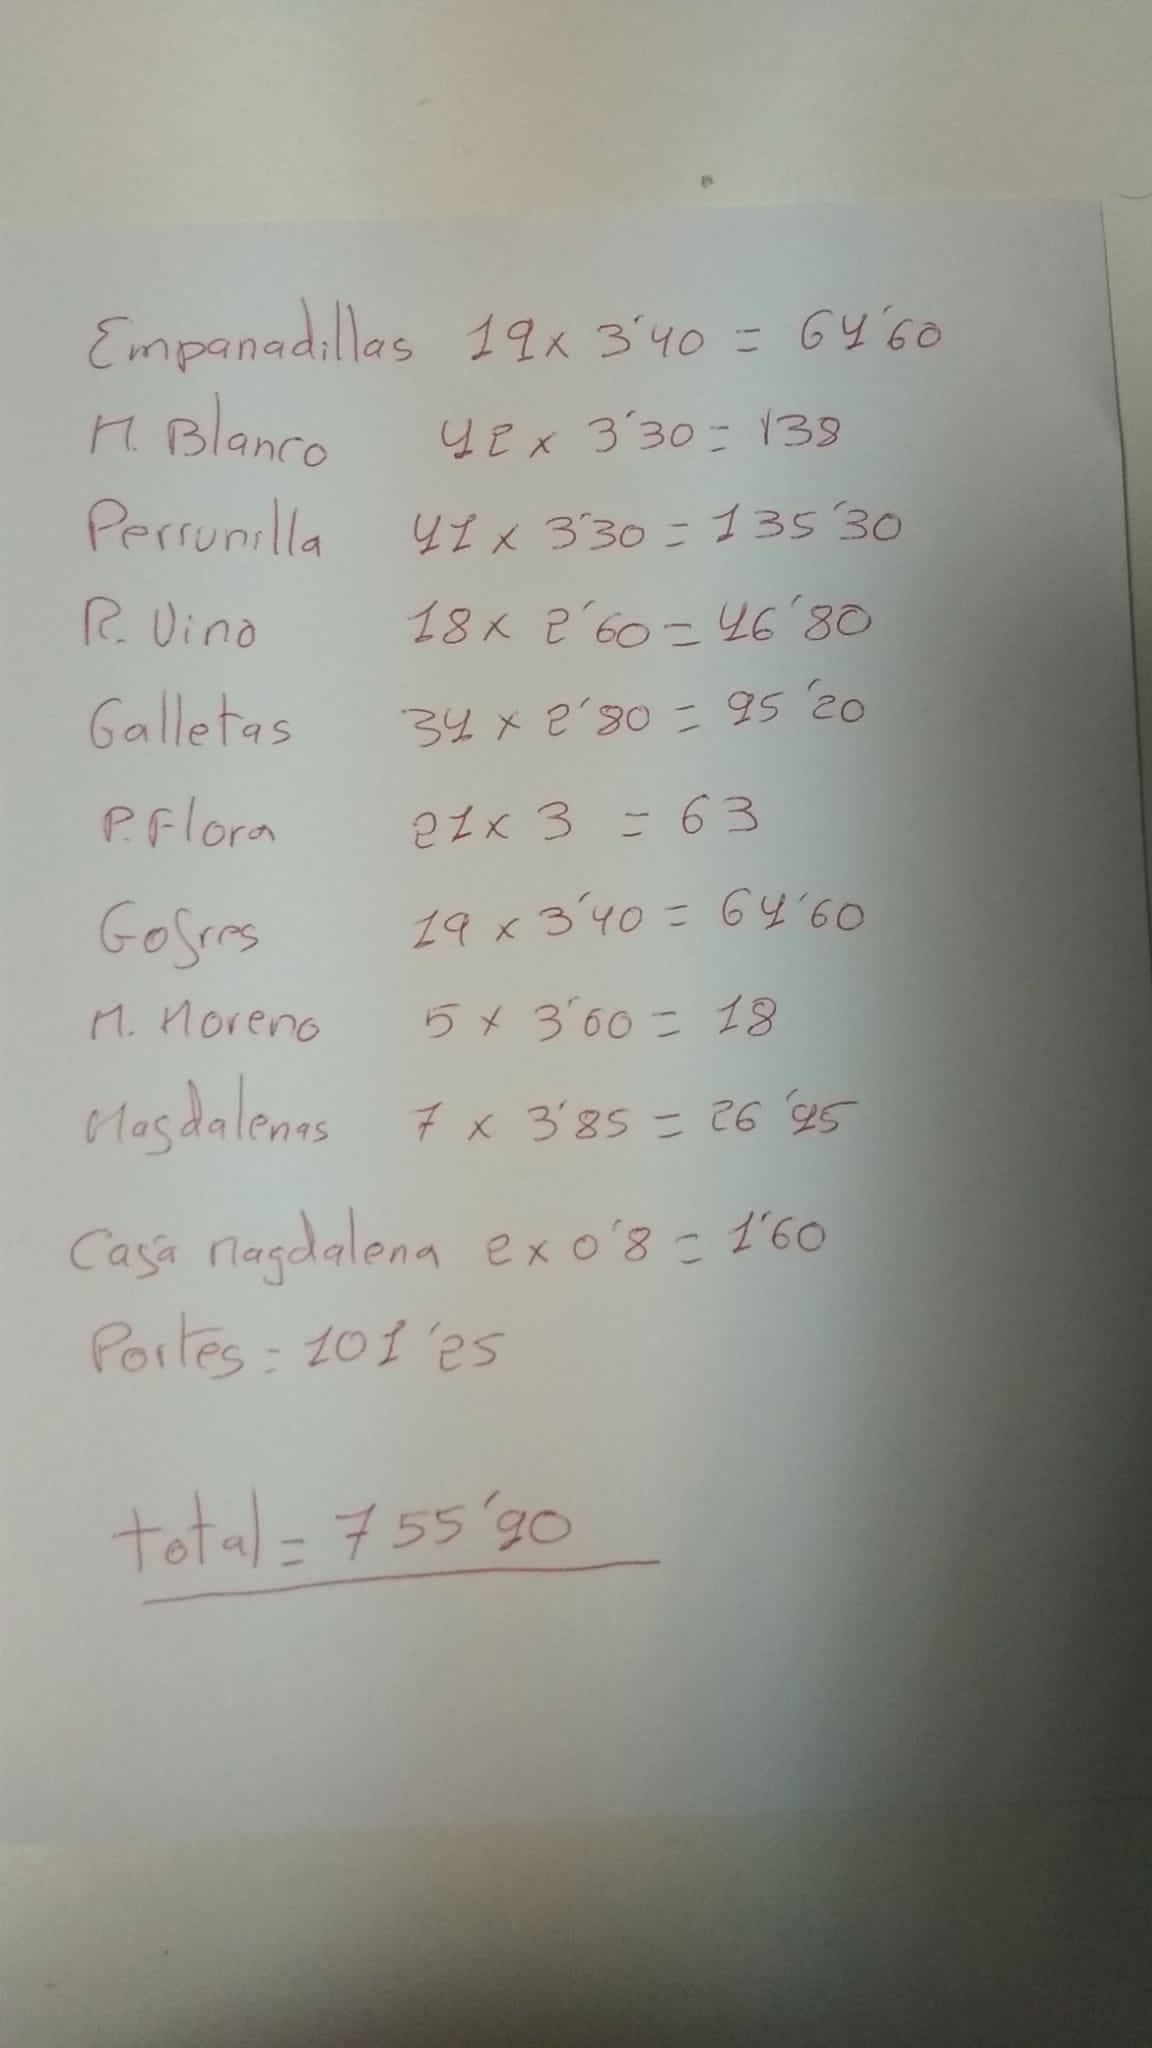 Empanadillas 19 x 3'40 = 64'60
M. Blanco 42 x 3'30 = 138
Perrunilla 41 x 3'30 = 135'30
R. Vino 18 x 2'60 = 46'80
Galletas 34 x 2'80 = 95'20
P. Flora 21 x 3 = 63
Gofres 19 x 3'40 = 64'60
M. Moreno 5 x 3'60 = 18
Magdalenas 7 x 3'85 = 26'95
Casa Magdalena 2 x 0'8 = 1'60
Portes = 101'25
total = 755'90